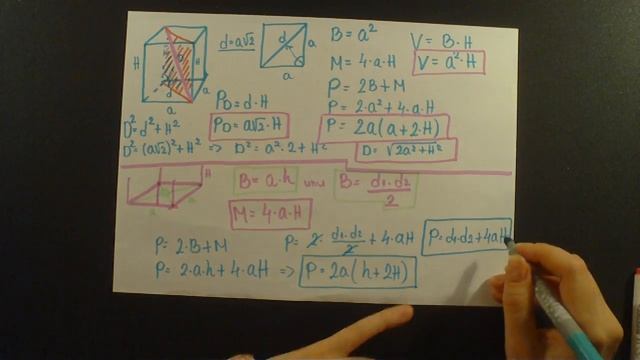 d=a√2
B=a²
V=B·H
M=4·a·H
V=a²·H
P=2B+M
P_D=d·H
P=2·a²+4·a·H
D²=d²+H²
P_D=a√2·H
P=2a(a+2·H)
D²=(a√2)²+H² => D²=a²·2+H²
D=√2a²+H²
B=a·h
B=d₁·d₂/2
M=4·a·H
P=2·B+M
P=2·d₁·d₂/2+4·aH
P=d₁·d₂+4aH
P=2·a·h+4·aH => P=2a(h+2H)